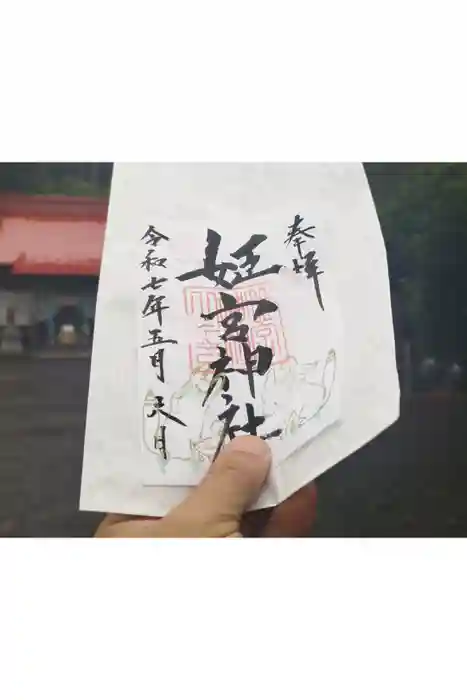 奉拝
姫宮神社
令和七年五月